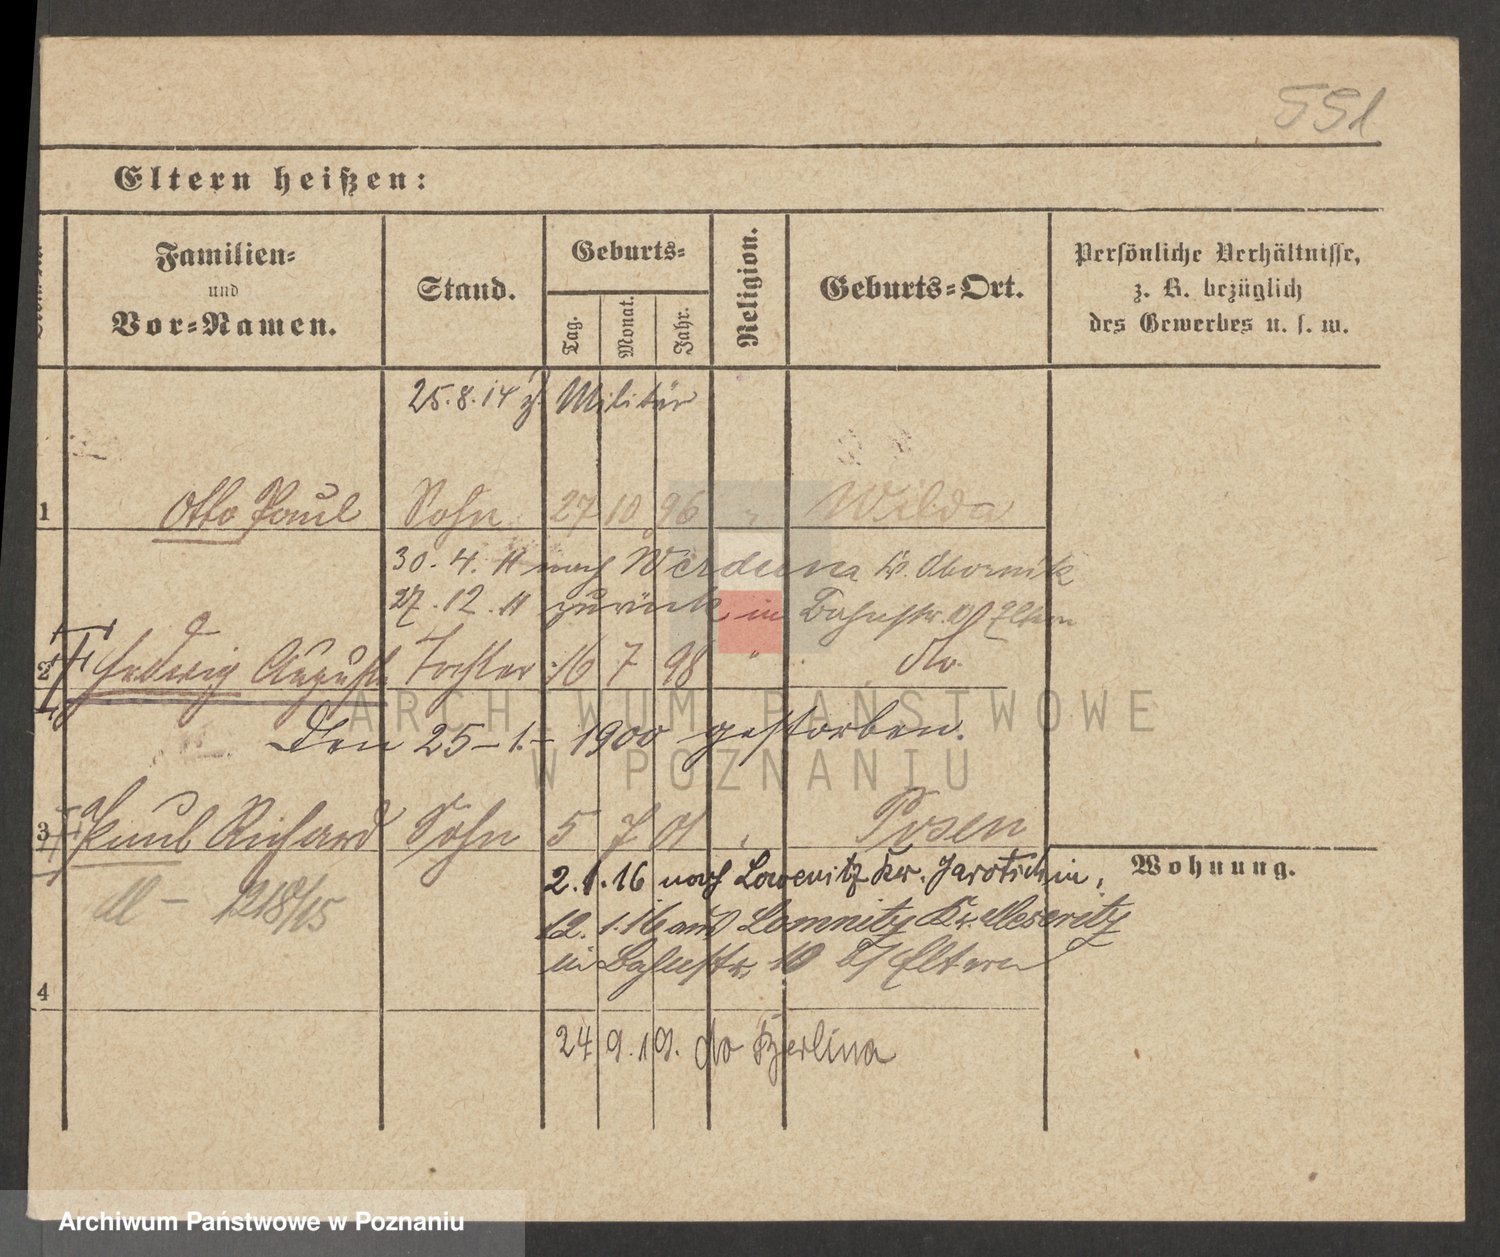 551
Eltern heißen:
Familien-
und
Vor-Namen.
Stand.
Geburts-
Tag.
Monat.
Jahr.
Religion.
Geburts-Ort.
Persönliche Verhältnisse,
z. B. bezüglich
des Gewerbes u. s. w.
25.8.14 z. Militär
1 Otto Paul Sohn 27 10 96 " Wilda
30.4.11 nach Werduna Kr. Obornik
27.12.11 zurück in Bahnstr. Eltern
2 Hedwig Auguste Tochter 16 7 98 " do.
Den 25-1.-1900 gestorben.
3 Paul Richard Sohn 5 7 01 " Posen
Wohnung.
2.1.16 nach Lowenitz Kr. Jarotschin,
12.1.16 aus Lomnitz Kr. Meseritz
in Bahnstr. 10 b/ Eltern
4
24 9.19. do Berlina
ARCHIWUM PAŃSTWOWE
W POZNANIU
Archiwum Państwowe w Poznaniu